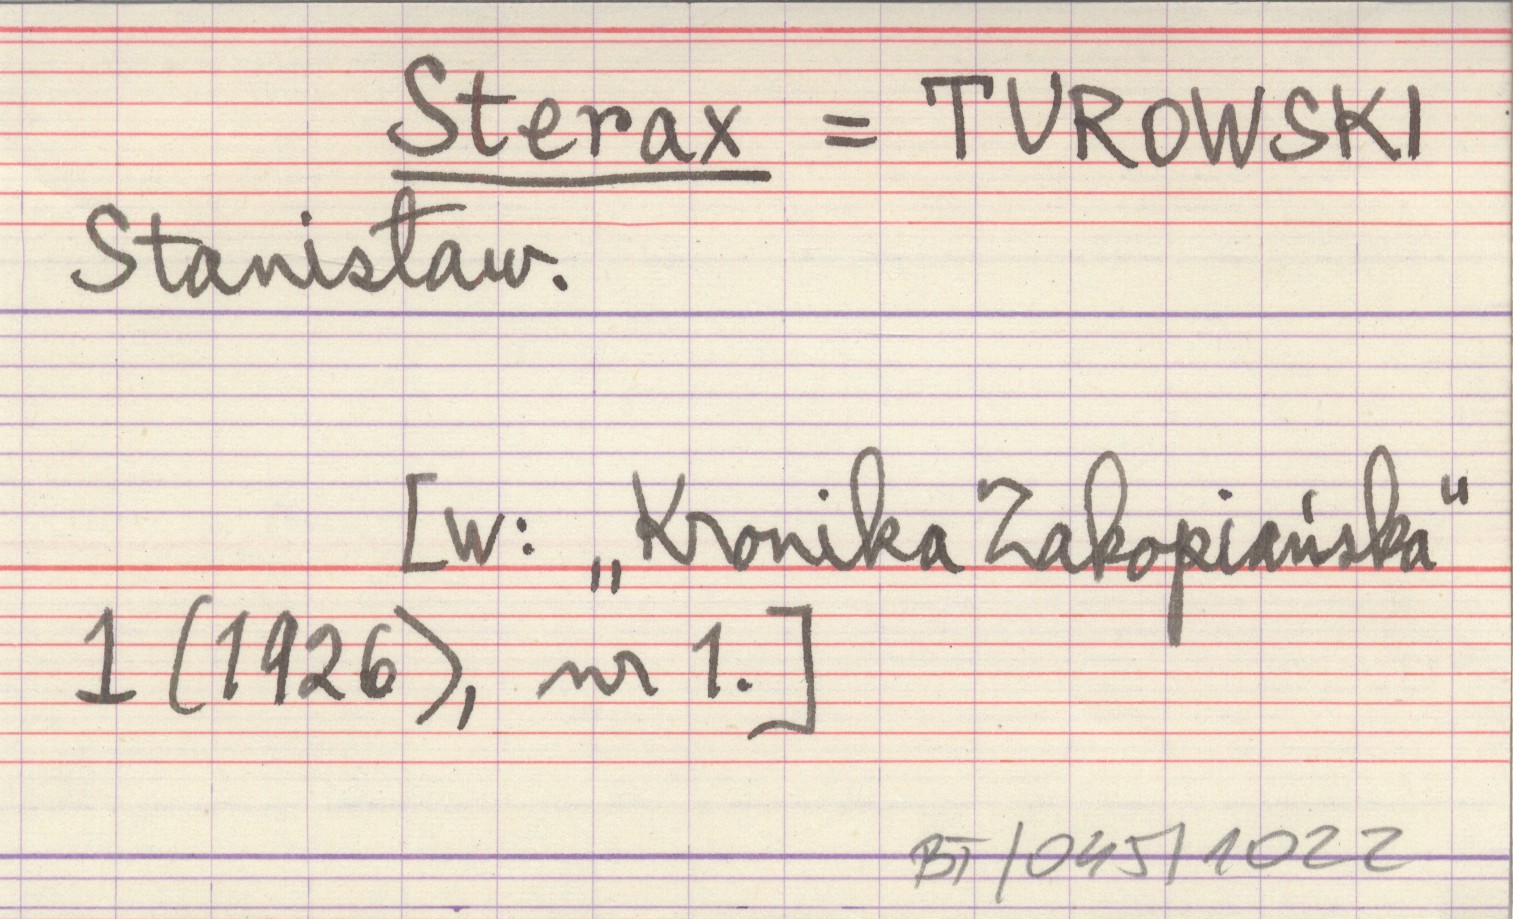 Sterax = TUROWSKI
Stanisław.
[w: „Kronika Zakopiańska"
1 (1926), nr 1.]
BT/045/1022